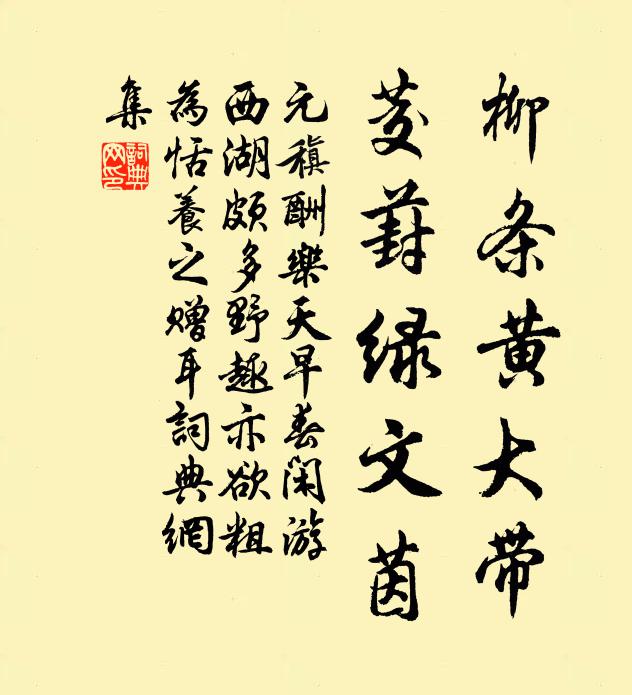 柳条黄大带
茭葑绿文茵
元稹酬樂天早春闲游
西湖頗多野趣亦欲粗
為恬養之赠耳詞典網
集
詞典网印